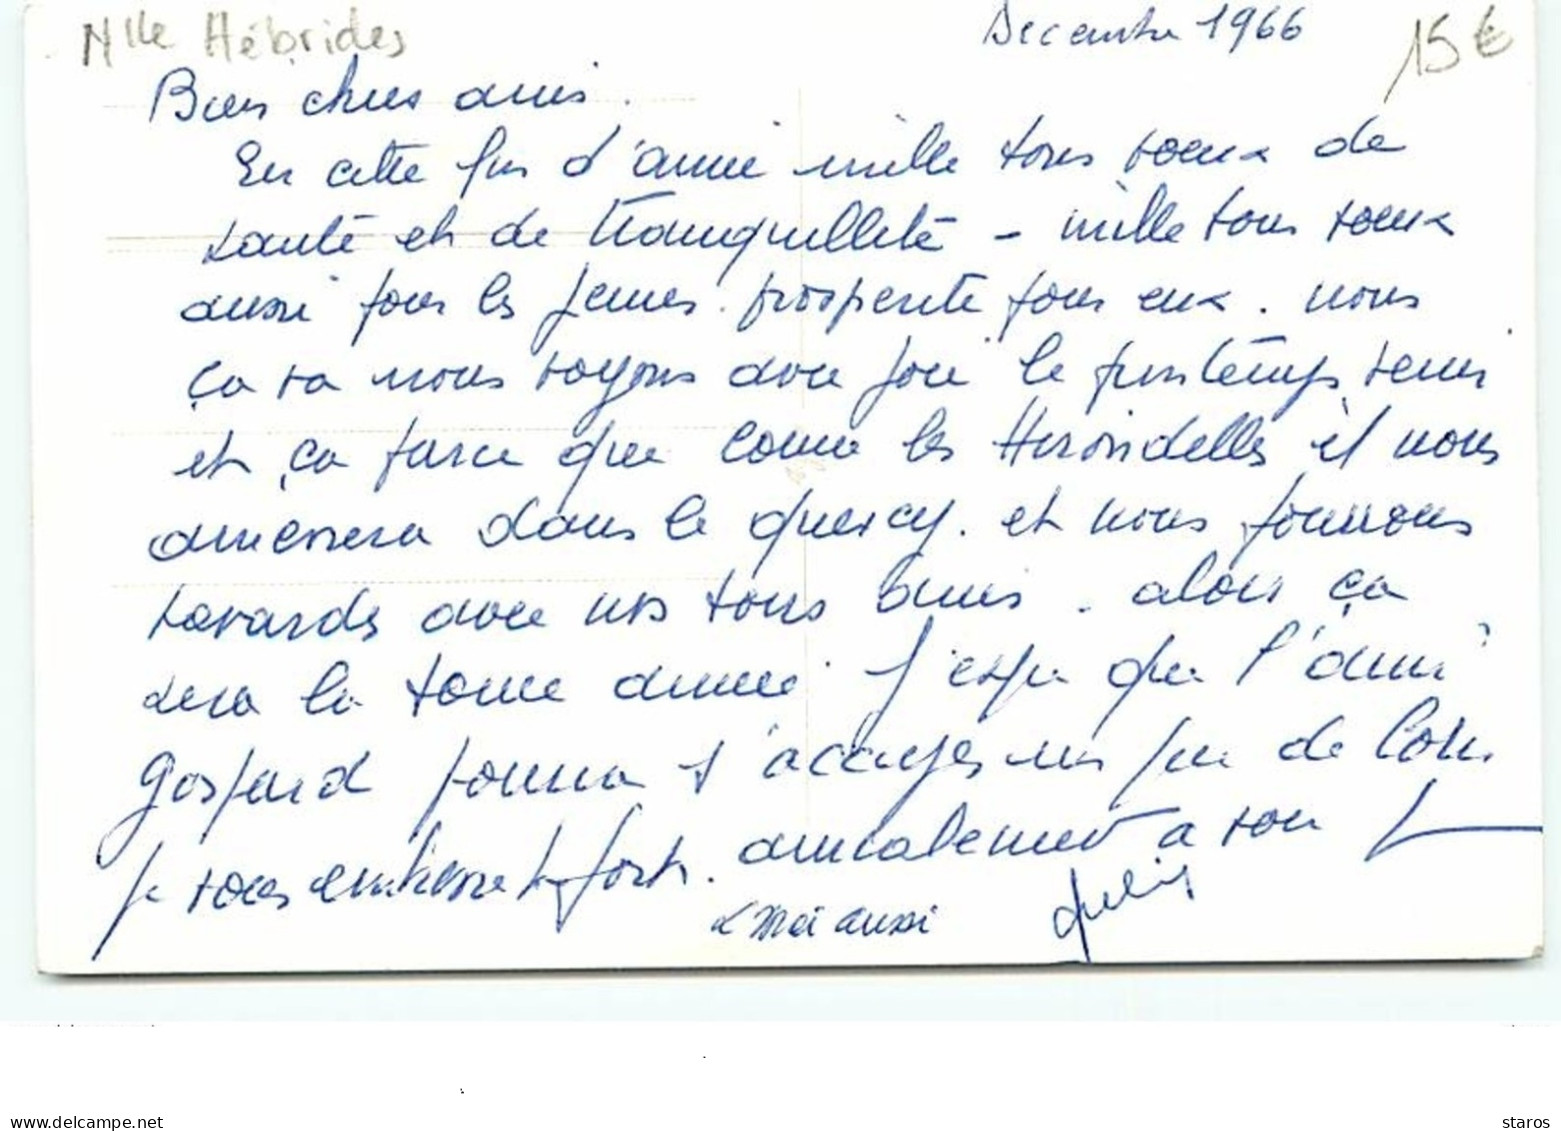 Nlle Hébrides
Decembre 1966
15€
Bien chers amis.
En cette fin d'année mille bons voeux de
santé et de tranquilleté - mille bons voeux
aussi pour les jeunes. prosperité pour eux. nous
ça va nous voyons avec joie le printemps venir
et ça parce que comme les Hirondelles il nous
amenera dans le quercy. et nous pourrons
bavarder avec nos bons amis. alors ça
sera la bonne année j'espere que l'ami
Gaspard pourra s'occuper un peu de
Je vous embrasse fort. amicalement a vous
& Moi aussi
www.delcampe.net
staros